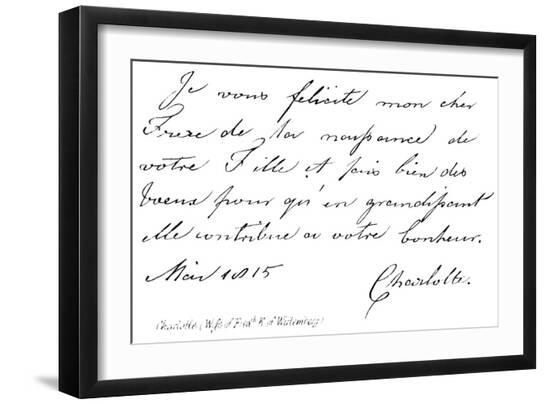 Je vous felicite mon cher
Frere de la naissance de
votre Fille et fais bien des
voeux pour qu'en grandissant
elle contribue a votre bonheur.
Mai 1815 Charlotte.
Charlotte (Wife of Fredk K. of Wurtemberg)